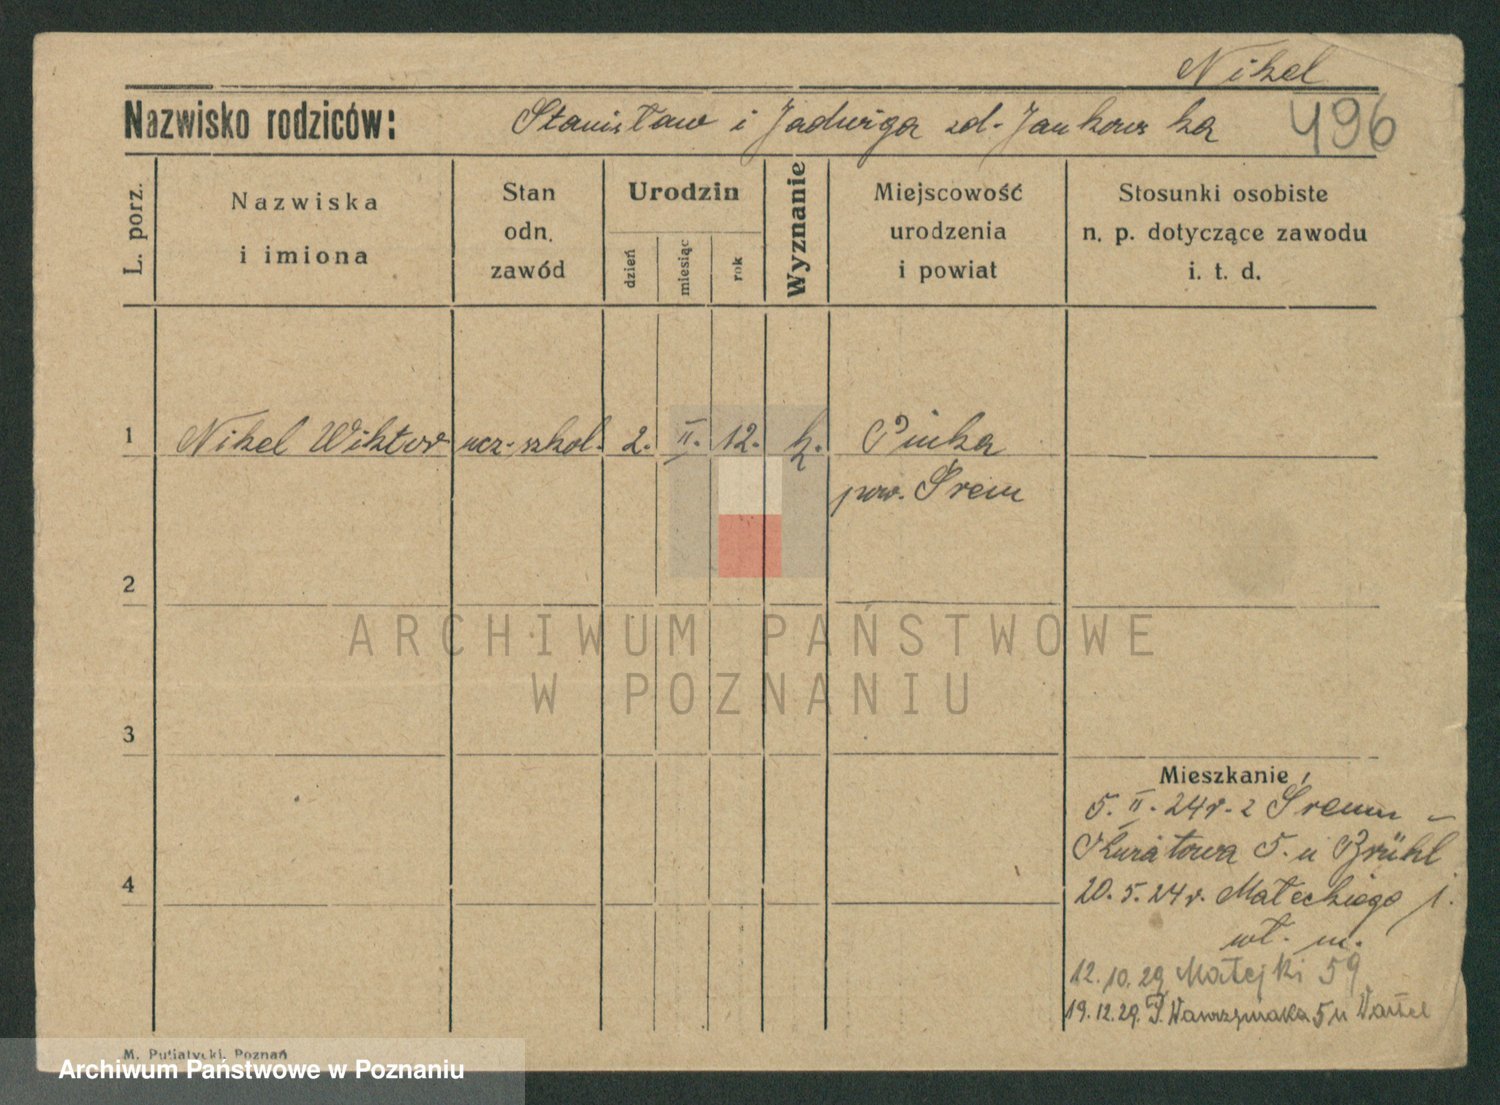 Nikel
Nazwisko rodziców: Stanisław i Jadwiga zd. Jankowska
496
L. porz.
Nazwiska
i imiona
Stan
odn.
zawód
Urodzin
dzień
miesiąc
rok
Wyznanie
Miejscowość
urodzenia
i powiat
Stosunki osobiste
n. p. dotyczące zawodu
i. t. d.
1 Nikel Wiktor ucz. szkol. 2. II. 12. k.
pow. Śrem
2
ARCHIWUM PAŃSTWOWE
W POZNANIU
3
Mieszkanie
5. II. 24 r. z Śremu -
5. u Brühl
4
20. 5. 24 r. Małeckiego j.
wł. m.
12. 10. 29 Matejki 59
19. 12. 29. Wawrzyniaka 5 u
M. Putiatycki, Poznań
Archiwum Państwowe w Poznaniu